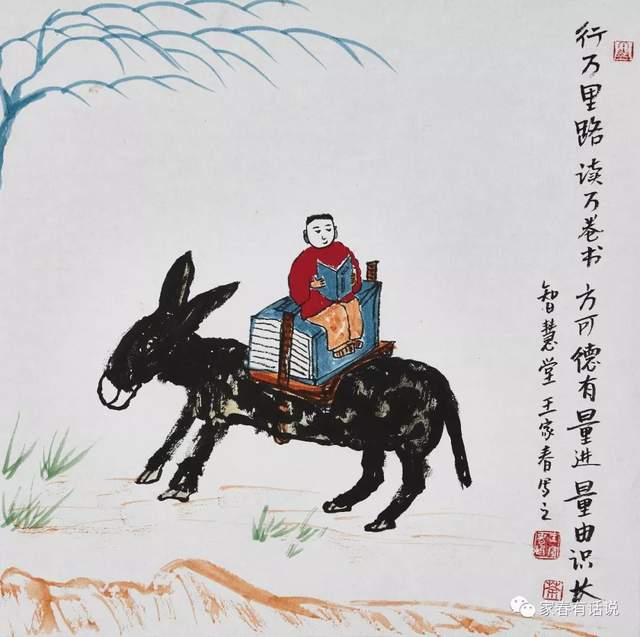 行万里路 读万卷书 方可德有量进 量由识长
智慧堂王家春写之
家春有话说